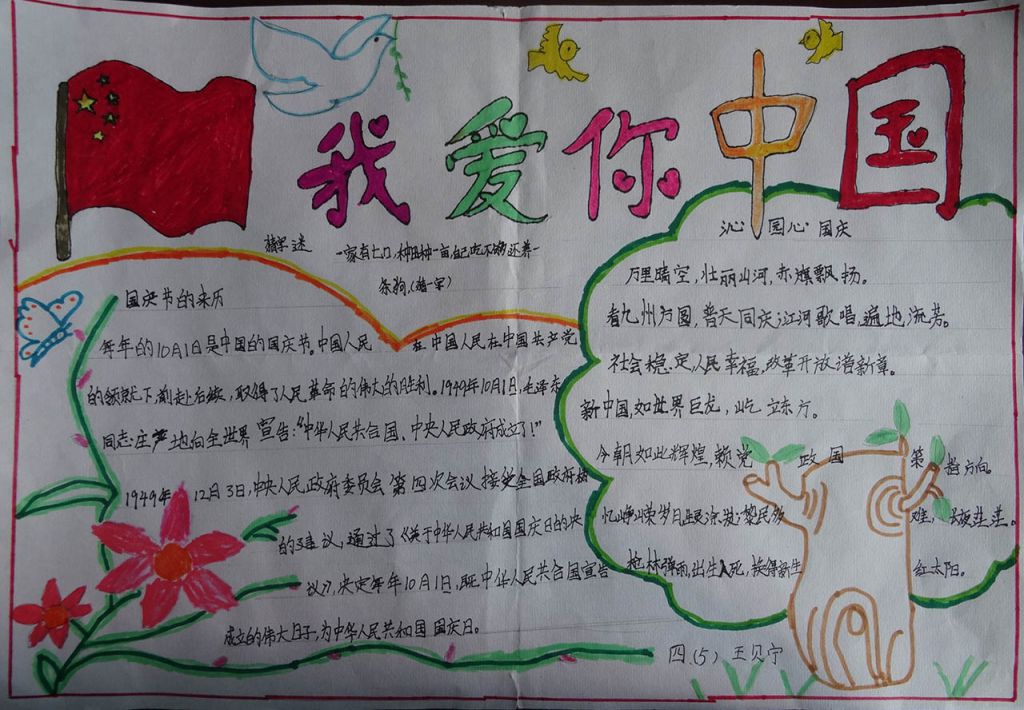 我爱你中国
猜字迷 一家有七口,种田种一亩,自己吃不够,还养一
条狗,(猜一字)
国庆节的来历
每年的10月1日是中国的国庆节。中国人民 在中国人民在中国共产党
的领默下,前赴后继,取得了人民革命的伟大的胜利。1949年10月1日,毛泽东
同志庄严地向全世界宣告:"中华人民共合国、中央人民政府成立了!"
1949年 12月3日,中央人民政府委员会第四次会议接受全国政府
的建议,通过了《关于中华人民共和国国庆日的决
议》,决定每年10月1日,即中华人民共合国宣告
成立的伟大日子,为中华人民共和国国庆日。
沁园心 国庆
万里晴空,壮丽山河,赤旗飘扬。
看九州方圆,普天同庆;江河歌唱,遍地流芳。
社会稳定,人民幸福,改革开放谱新章。
新中国,如世界巨龙,屹立东方。
今朝如此辉煌,赖党 政国 策 方向
忆峥嵘岁月 黎民 难,
枪林弹雨,出生入死,换得新生 红太阳。
四(5) 王贝宁